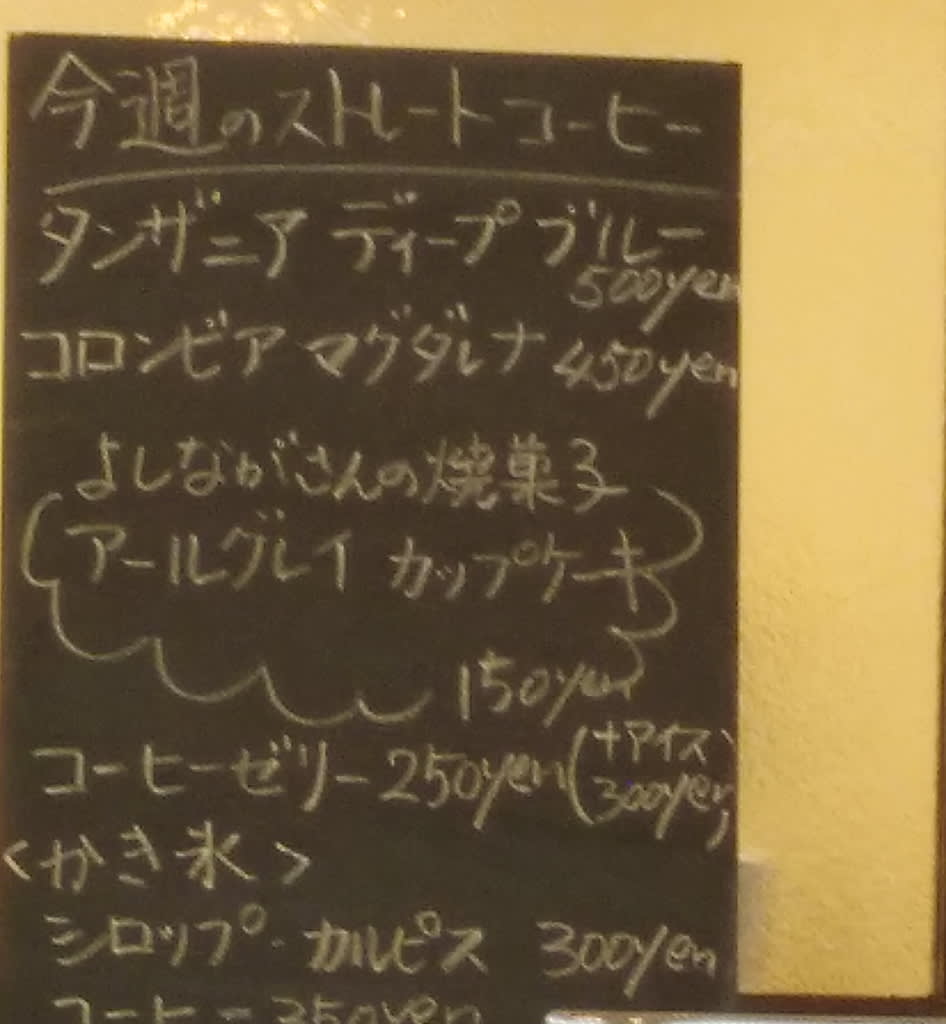 今週のストレートコーヒー
タンザニア ディープブルー
500yen
コロンビア マグダレナ 450yen
よしながさんの焼菓子
アールグレイ カップケーキ
150yen
コーヒーゼリー 250yen (+アイス
300yen)
<かき氷>
シロップ・カルピス 300yen
コーヒー 350yen